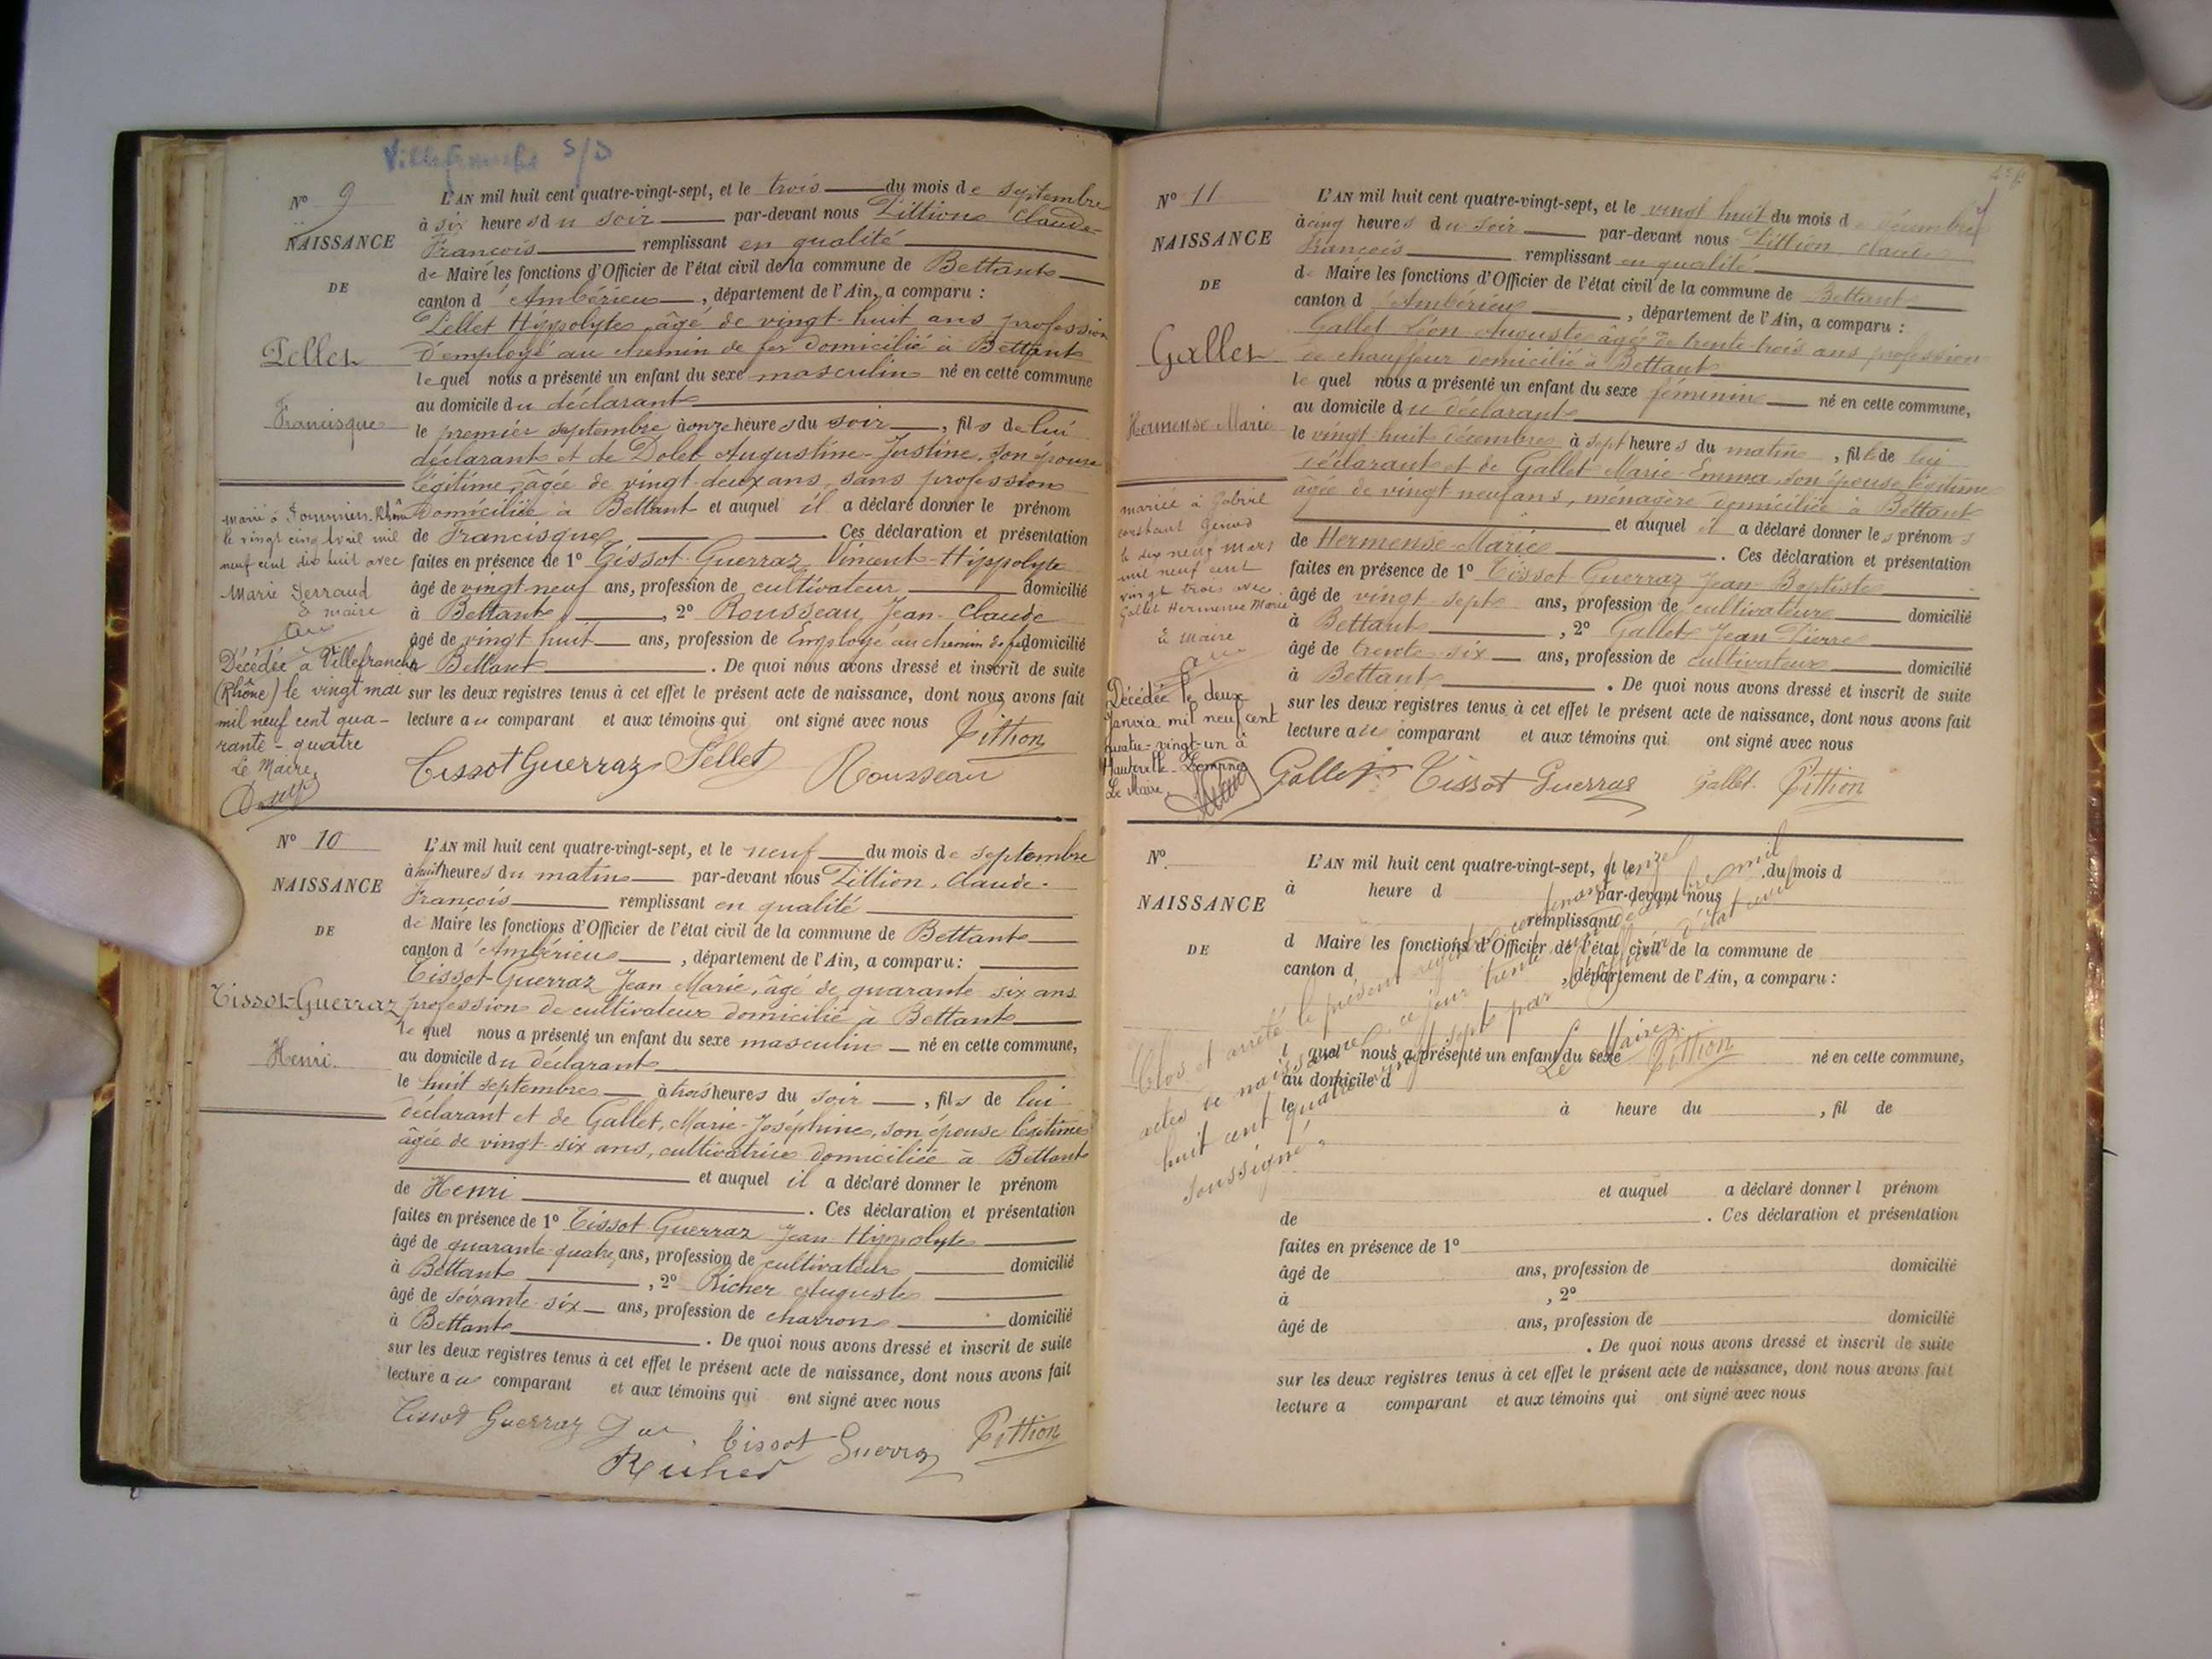 Villefranche S/S
Nº 9
NAISSANCE
DE
Pellet
Francisque
L'AN mil huit cent quatre-vingt-sept, et le trois du mois de septembre
à six heures du soir par-devant nous Pittion Claude-
François remplissant en qualité
de Maire les fonctions d'Officier de l'état civil de la commune de Bettant
canton d'Ambérieu, département de l'Ain, a comparu :
Pellet Hippolyte, âgé de vingt-huit ans profession
d'employé au chemin de fer domicilié à Bettant
lequel nous a présenté un enfant du sexe masculin né en cette commune
au domicile du déclarant
le premier septembre à onze heures du soir, fils de lui
déclarant et de Dolet Augustine-Justine, son épouse
légitime, âgée de vingt-deux ans, sans profession
domiciliée à Bettant et auquel il a déclaré donner le prénom
de Francisque. Ces déclaration et présentation
faites en présence de 1º Tissot-Guerraz Vincent-Hippolyte
âgé de vingt neuf ans, profession de cultivateur domicilié
à Bettant, 2º Rousseau Jean-Claude
âgé de vingt huit ans, profession de Employé au chemin de fer domicilié
à Bettant. De quoi nous avons dressé et inscrit de suite
sur les deux registres tenus à cet effet le présent acte de naissance, dont nous avons fait
lecture au comparant et aux témoins qui ont signé avec nous Pittion
Tissot Guerraz Pellet Rousseau
Marié à Rhône
le vingt cinq avril mil
neuf cent dix huit avec
Marie Perraud
Le maire
Décédée à Villefranche
(Rhône) le vingt mai
mil neuf cent qua-
rante-quatre
Le Maire,
Nº 10
NAISSANCE
DE
Tissot-Guerraz
Henri
L'AN mil huit cent quatre-vingt-sept, et le neuf du mois de septembre
à huit heures du matin par-devant nous Pittion, Claude-
François remplissant en qualité
de Maire les fonctions d'Officier de l'état civil de la commune de Bettant
canton d'Ambérieu, département de l'Ain, a comparu :
Tissot-Guerraz Jean Marie, âgé de quarante six ans
profession de cultivateur domicilié à Bettant
lequel nous a présenté un enfant du sexe masculin né en cette commune,
au domicile du déclarant
le huit septembre à trois heures du soir, fils de lui
déclarant et de Gallet, Marie-Joséphine, son épouse légitime
âgée de vingt-six ans, cultivatrice domiciliée à Bettant
et auquel il a déclaré donner le prénom
de Henri. Ces déclaration et présentation
faites en présence de 1º Tissot-Guerraz Jean-Hippolyte
âgé de quarante-quatre ans, profession de cultivateur domicilié
à Bettant, 2º Richer Auguste
âgé de soixante-six ans, profession de charron domicilié
à Bettant. De quoi nous avons dressé et inscrit de suite
sur les deux registres tenus à cet effet le présent acte de naissance, dont nous avons fait
lecture au comparant et aux témoins qui ont signé avec nous
Tissot Guerraz Tissot Guerraz Pittion
Richer
Nº 11
NAISSANCE
DE
Gallet
Hermense-Marie
L'AN mil huit cent quatre-vingt-sept, et le vingt huit du mois de décembre
à cinq heures du soir par-devant nous Pittion, Claude
François remplissant en qualité
de Maire les fonctions d'Officier de l'état civil de la commune de Bettant
canton d'Ambérieu, département de l'Ain, a comparu :
Gallet Léon Auguste, âgé de trente trois ans profession
de chauffeur domicilié à Bettant
lequel nous a présenté un enfant du sexe féminin né en cette commune,
au domicile du déclarant
le vingt-huit décembre à sept heures du matin, fille de lui
déclarant et de Gallet Marie-Emma, son épouse légitime
âgée de vingt neuf ans, ménagère domiciliée à Bettant
et auquel il a déclaré donner les prénoms
de Hermense-Marie. Ces déclaration et présentation
faites en présence de 1º Tissot-Guerraz Jean-Baptiste
âgé de vingt-sept ans, profession de cultivateur domicilié
à Bettant, 2º Gallet Jean Pierre
âgé de trente-six ans, profession de cultivateur domicilié
à Bettant. De quoi nous avons dressé et inscrit de suite
sur les deux registres tenus à cet effet le présent acte de naissance, dont nous avons fait
lecture au comparant et aux témoins qui ont signé avec nous
Gallet Tissot Guerraz Gallet Pittion
mariée à Gabriel
constant
le dix neuf Mars
mil neuf cent
vingt trois avec
Gallet Hermense Marie
Le Maire
Décédée le deux
Janvier mil neuf cent
quatre-vingt-un à
Hauteville-Lompnes
Le Maire,
Nº
NAISSANCE
DE
L'AN mil huit cent quatre-vingt-sept, et le du mois d
à heure d par-devant nous
remplissant
d Maire les fonctions d'Officier de l'état civil de la commune de
canton d , département de l'Ain, a comparu :
l quel nous a présenté un enfant du sexe né en cette commune,
au domicile d
le à heure du , fil de
et auquel a déclaré donner l prénom
de . Ces déclaration et présentation
faites en présence de 1º
âgé de ans, profession de domicilié
à , 2º
âgé de ans, profession de domicilié
. De quoi nous avons dressé et inscrit de suite
sur les deux registres tenus à cet effet le présent acte de naissance, dont nous avons fait
lecture a comparant et aux témoins qui ont signé avec nous
Clos et arrêté le présent registre contenant onze
actes de naissance, ce jour trente un décembre mil
huit cent quatre vingt sept par officier d'état civil
soussigné.
Le Maire
Pittion